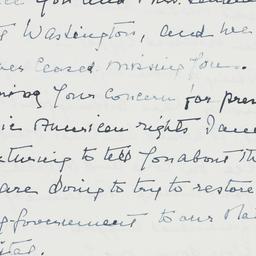 you and Mrs.
Washington, and we
ceased missing you.
your concern for pres
American rights I am
turing to tell you about th
are doing to try to restore
government to our Nat